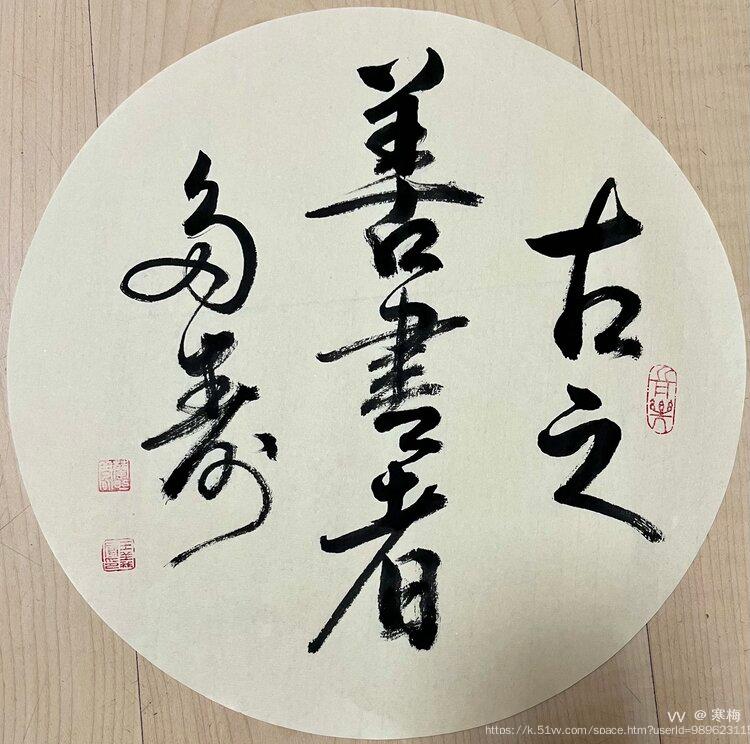 古之
善書者
多壽
VV @ 寒梅
https://k.51vv.com/space.htm?userId=98962311